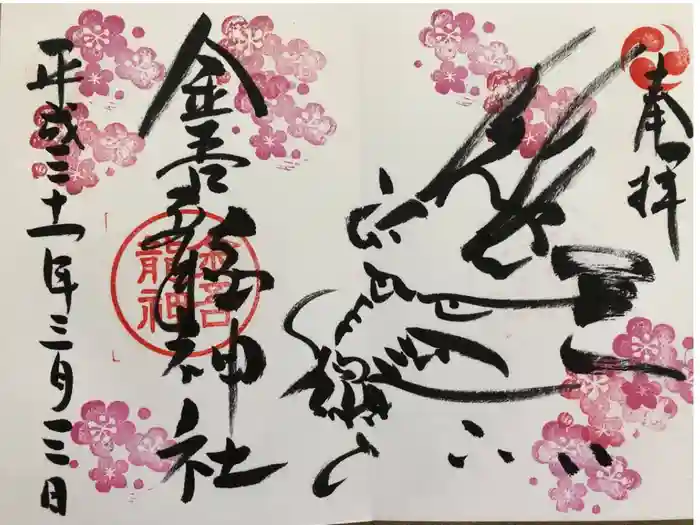 奉拝
金吾龍神社
金吾
龍神
平成三十一年三月三日